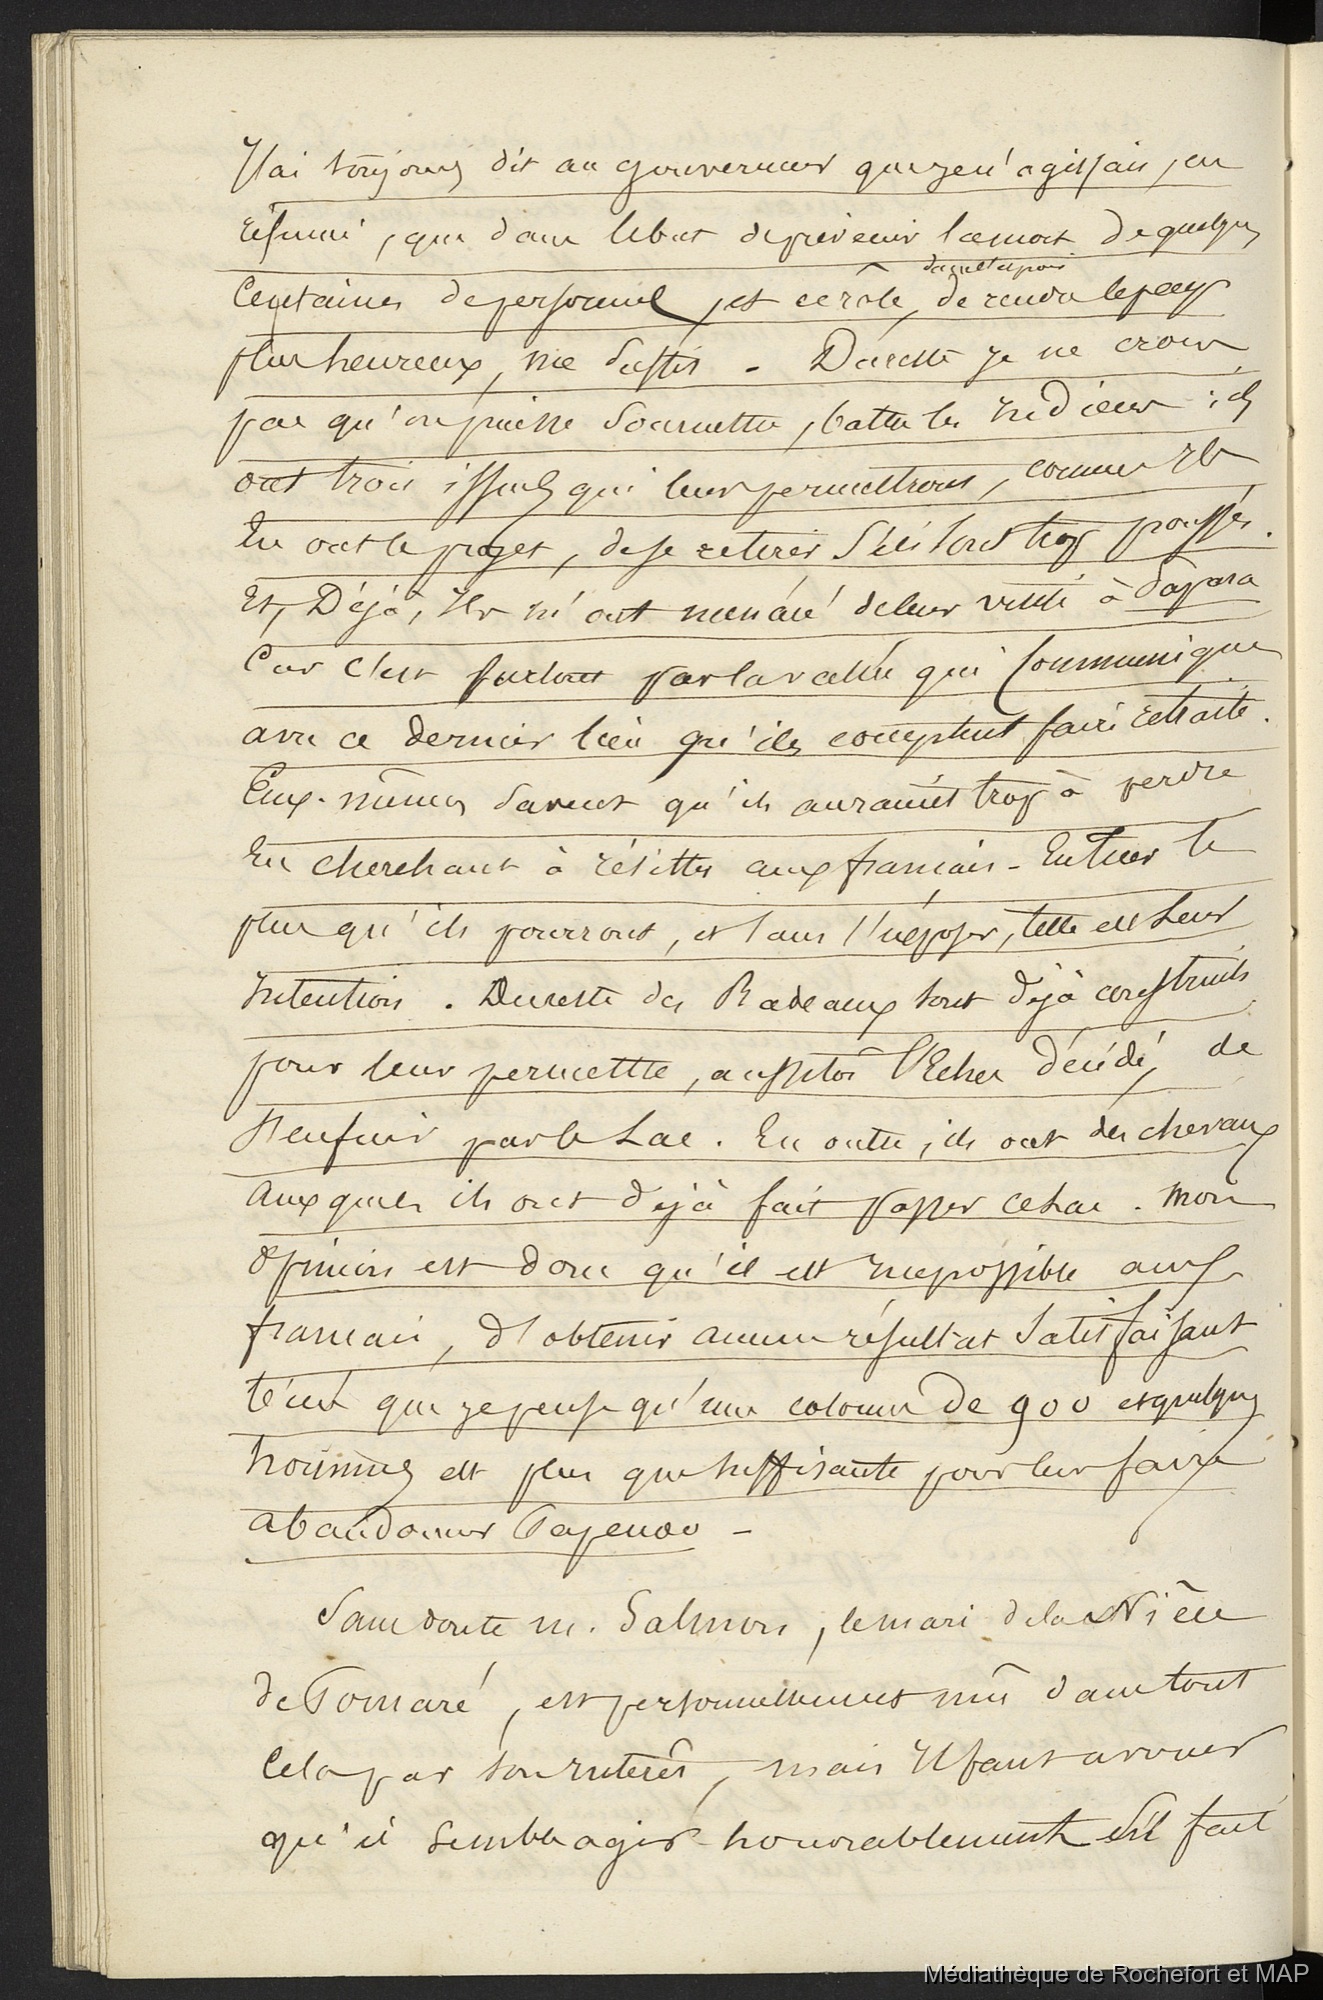 J'ai toujours dit au gouverneur que je n'agissais, en
résumé, que dans le but de prévenir la mort de quelques
Centaines de personnes, et ce rôle, de rendre le pays
plus heureux, me suffit - Du reste je ne crois
pas qu'on puisse soumettre, battre les Indiens : ils
ont trois issues qui leur permettront, comme Ils
En ont le projet, de se retirer S'ils sont trop poussés.
Et, Déjà, Ils m'ont menacé de leur visite à Papara
Car c'est surtout par la vallée qui Communique
avec ce dernier lieu qu'ils comptent faire retraite.
Eux-mêmes savent qu'ils auraient trop à perdre
En cherchant à résister aux français - En tuer le
plus qu'ils pourront, et sans s'exposer, telle est Leur
Intention. Du reste des Radeaux sont déjà construits
pour leur permettre, aussitôt l'Echec décidé, de
s'enfuir par le Lac. En outre, ils ont des chevaux
Auxquels ils ont déjà fait passer ce Lac. Mon
opinion est donc qu'il est Impossible aux
français, d'obtenir aucun résultat Satisfaisant
que je pense qu'une colonne De 900 et quelques
hommes est plus que suffisante pour leur faire
abandonner Papenoo -
Sans doute M. Salmon, le mari de la Nièce
de Pomaré, est personnellement mû dans tout
Cela par son Intérêt, mais Il faut avouer
qu'il semble agir honorablement S'il fait
Médiathèque de Rochefort et MAP